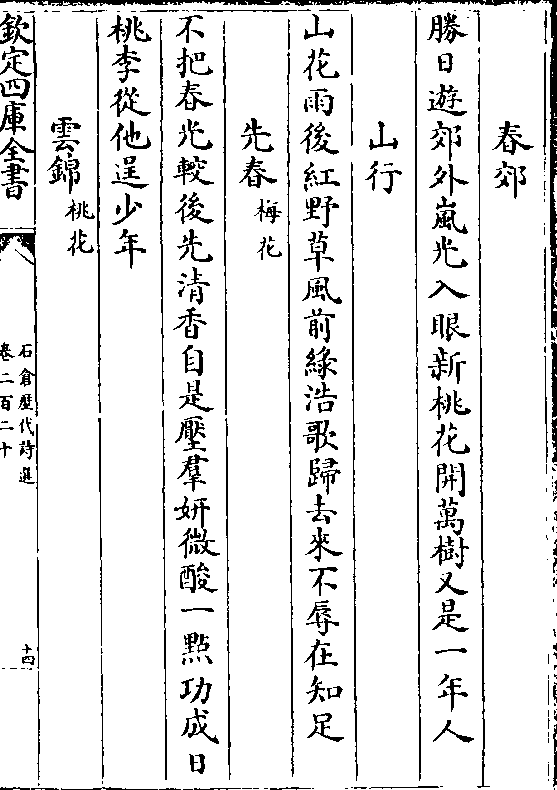 春郊
勝日遊郊外嵐光入眼新桃花開萬樹又是一年人
山行
山花雨後紅野草風前綠浩歌歸去來不辱在知足
先春梅花
不把春光較後先清香自是壓羣妍微酸一點功成日
桃李從他逞少年
雲錦桃花
欽定四庫全書
石倉歷代詩選
卷二百二十
十四